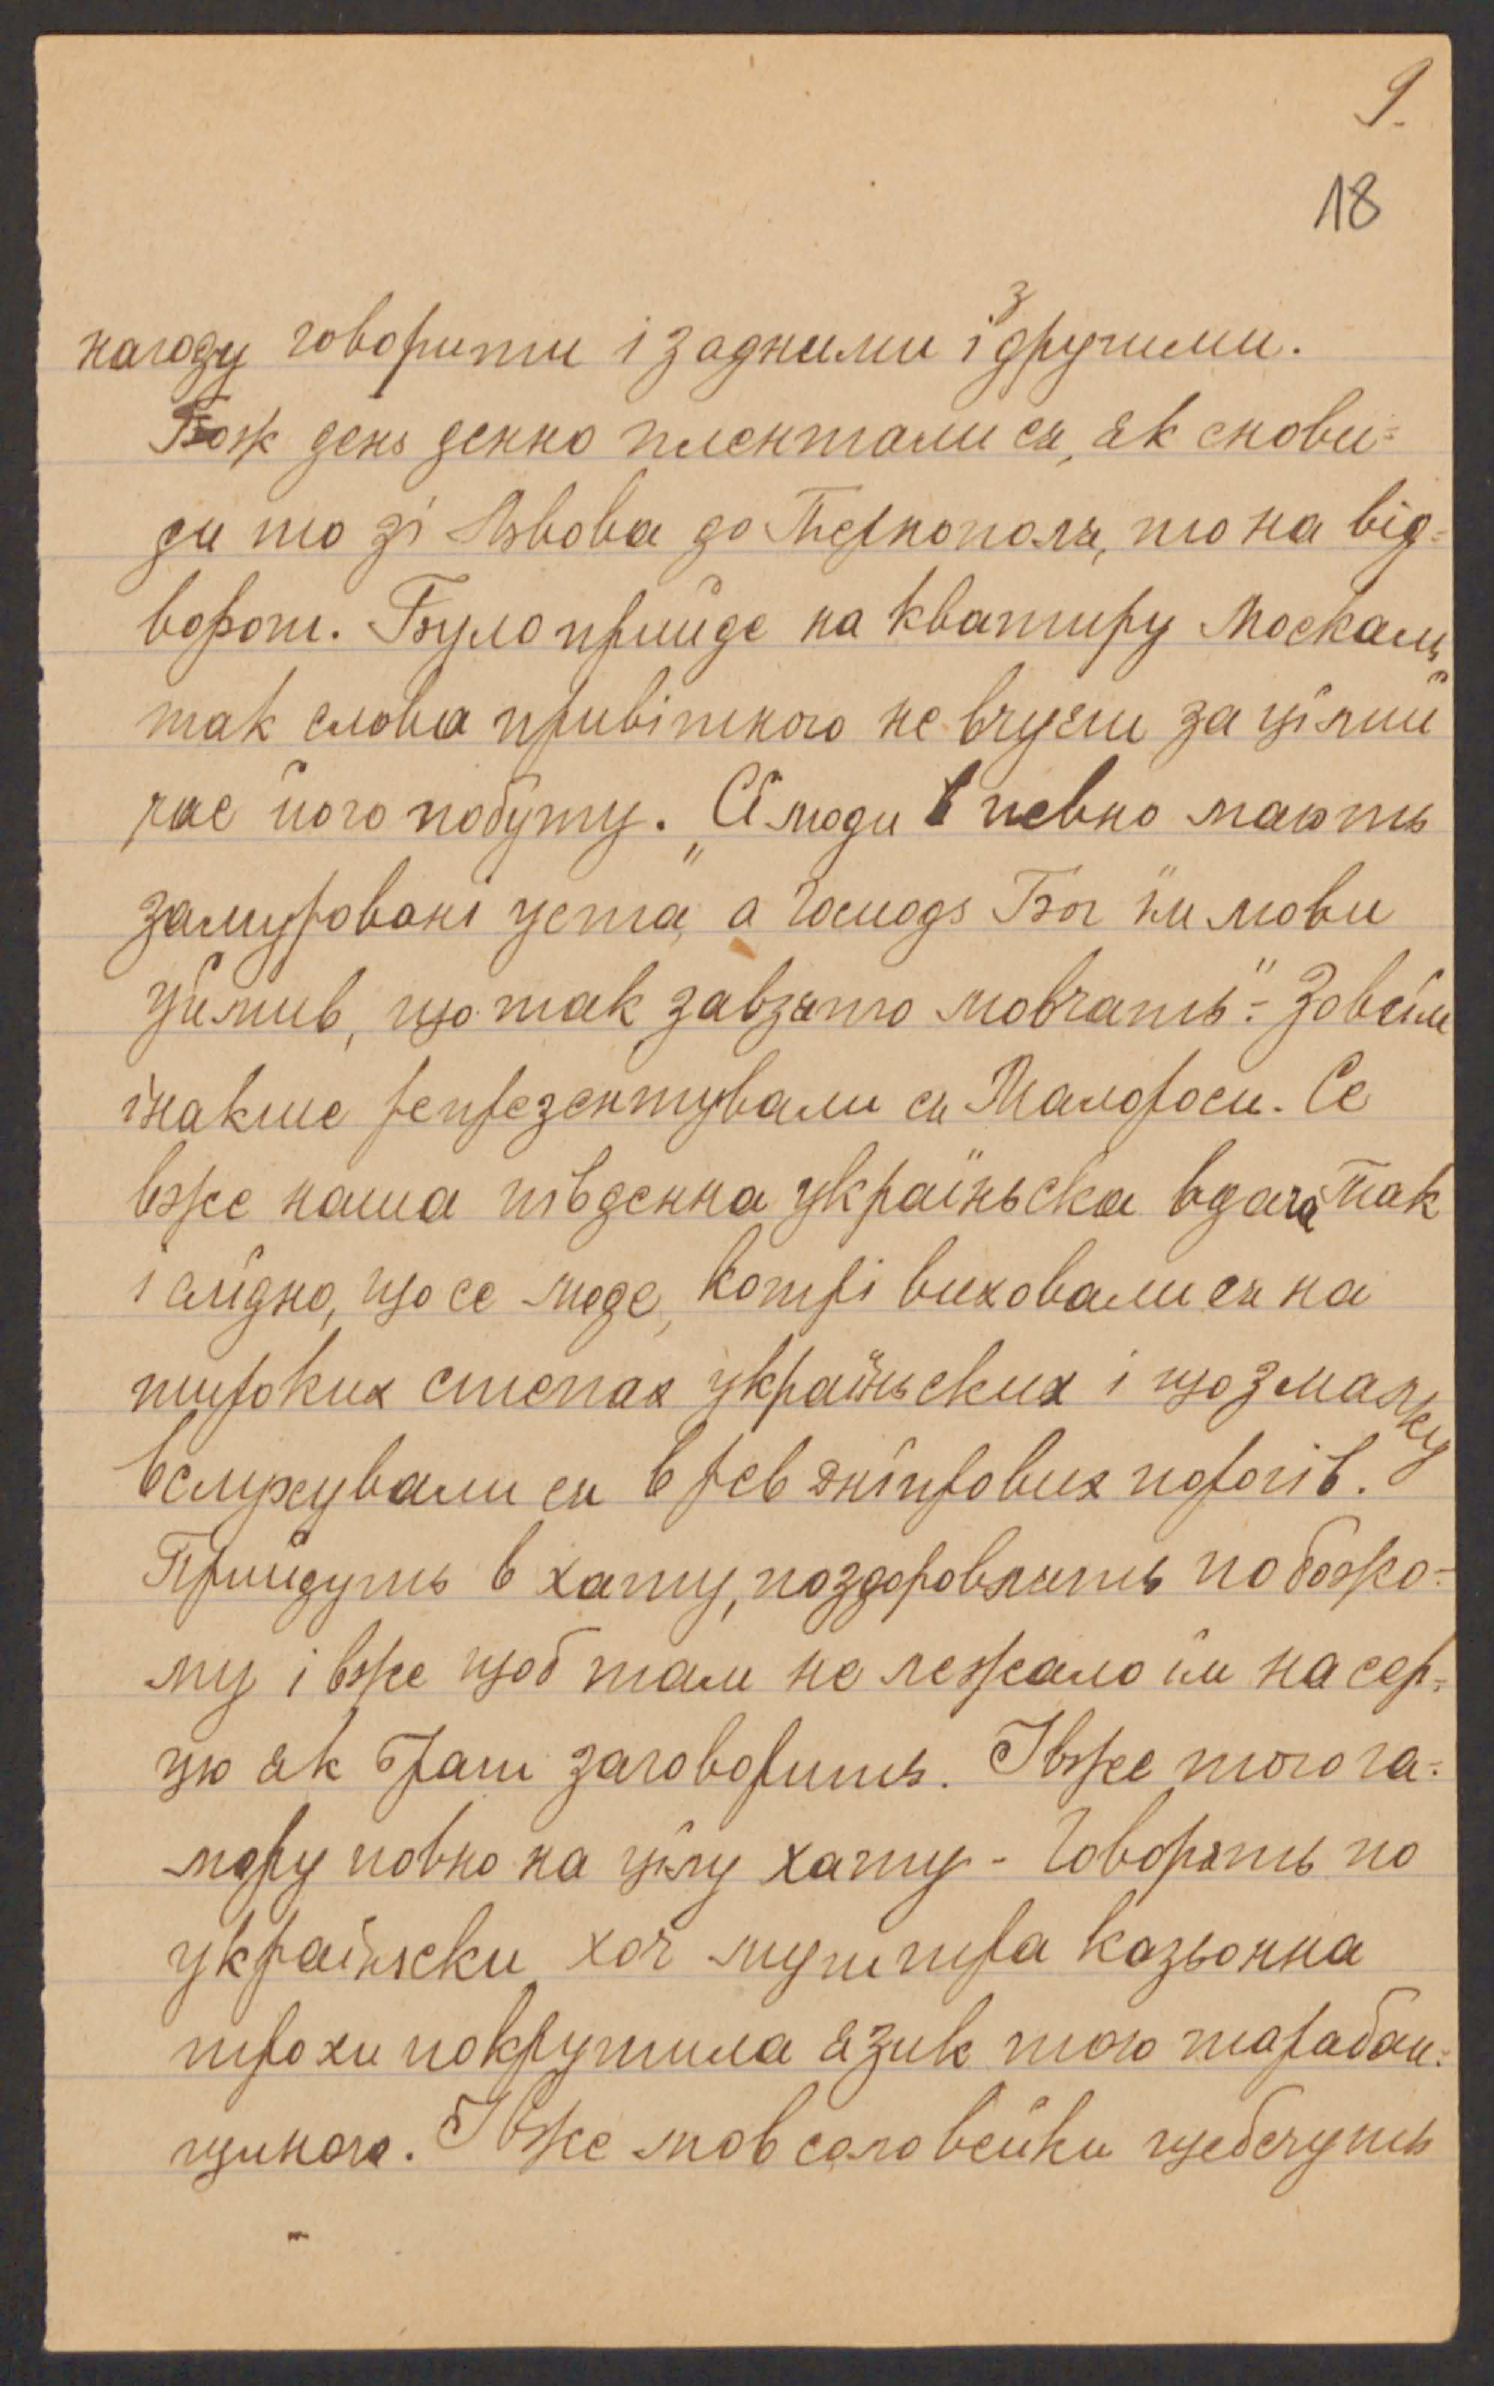 9.
18
нагоду говорити і з одними і з другими.
Бож день денно плентали ся, як снови=
ди то зі Львова до Тернополя, то на від=
ворот. Було прийде на кватиру Москаль,
так слова привітного не вчуєш за цїлий
час його побуту. „Сї люди певно мають
замуровані уста, а Господь Бог їм мови
уймив, що так завзято мовчать"= Зовсїм
інакше репрезентували ся Малороси. Се
вже наша південна україньска вдача. Так
і слїдно, що се люде, котрі виховали ся на
широких степах україньских і що змалку
вслухували ся в рев днїпрових порогів.
Прийдуть в хату, поздоровлять по божо=
му і вже щоб там не лежало їм на сер=
цю як брат заговорить. І вже того га=
мору повно на цїлу хату - Говорять по
україньски хоч муштра казьонна
трохи покрутила язик тою тарабан=
щиною. І вже мов соловейки щебечуть